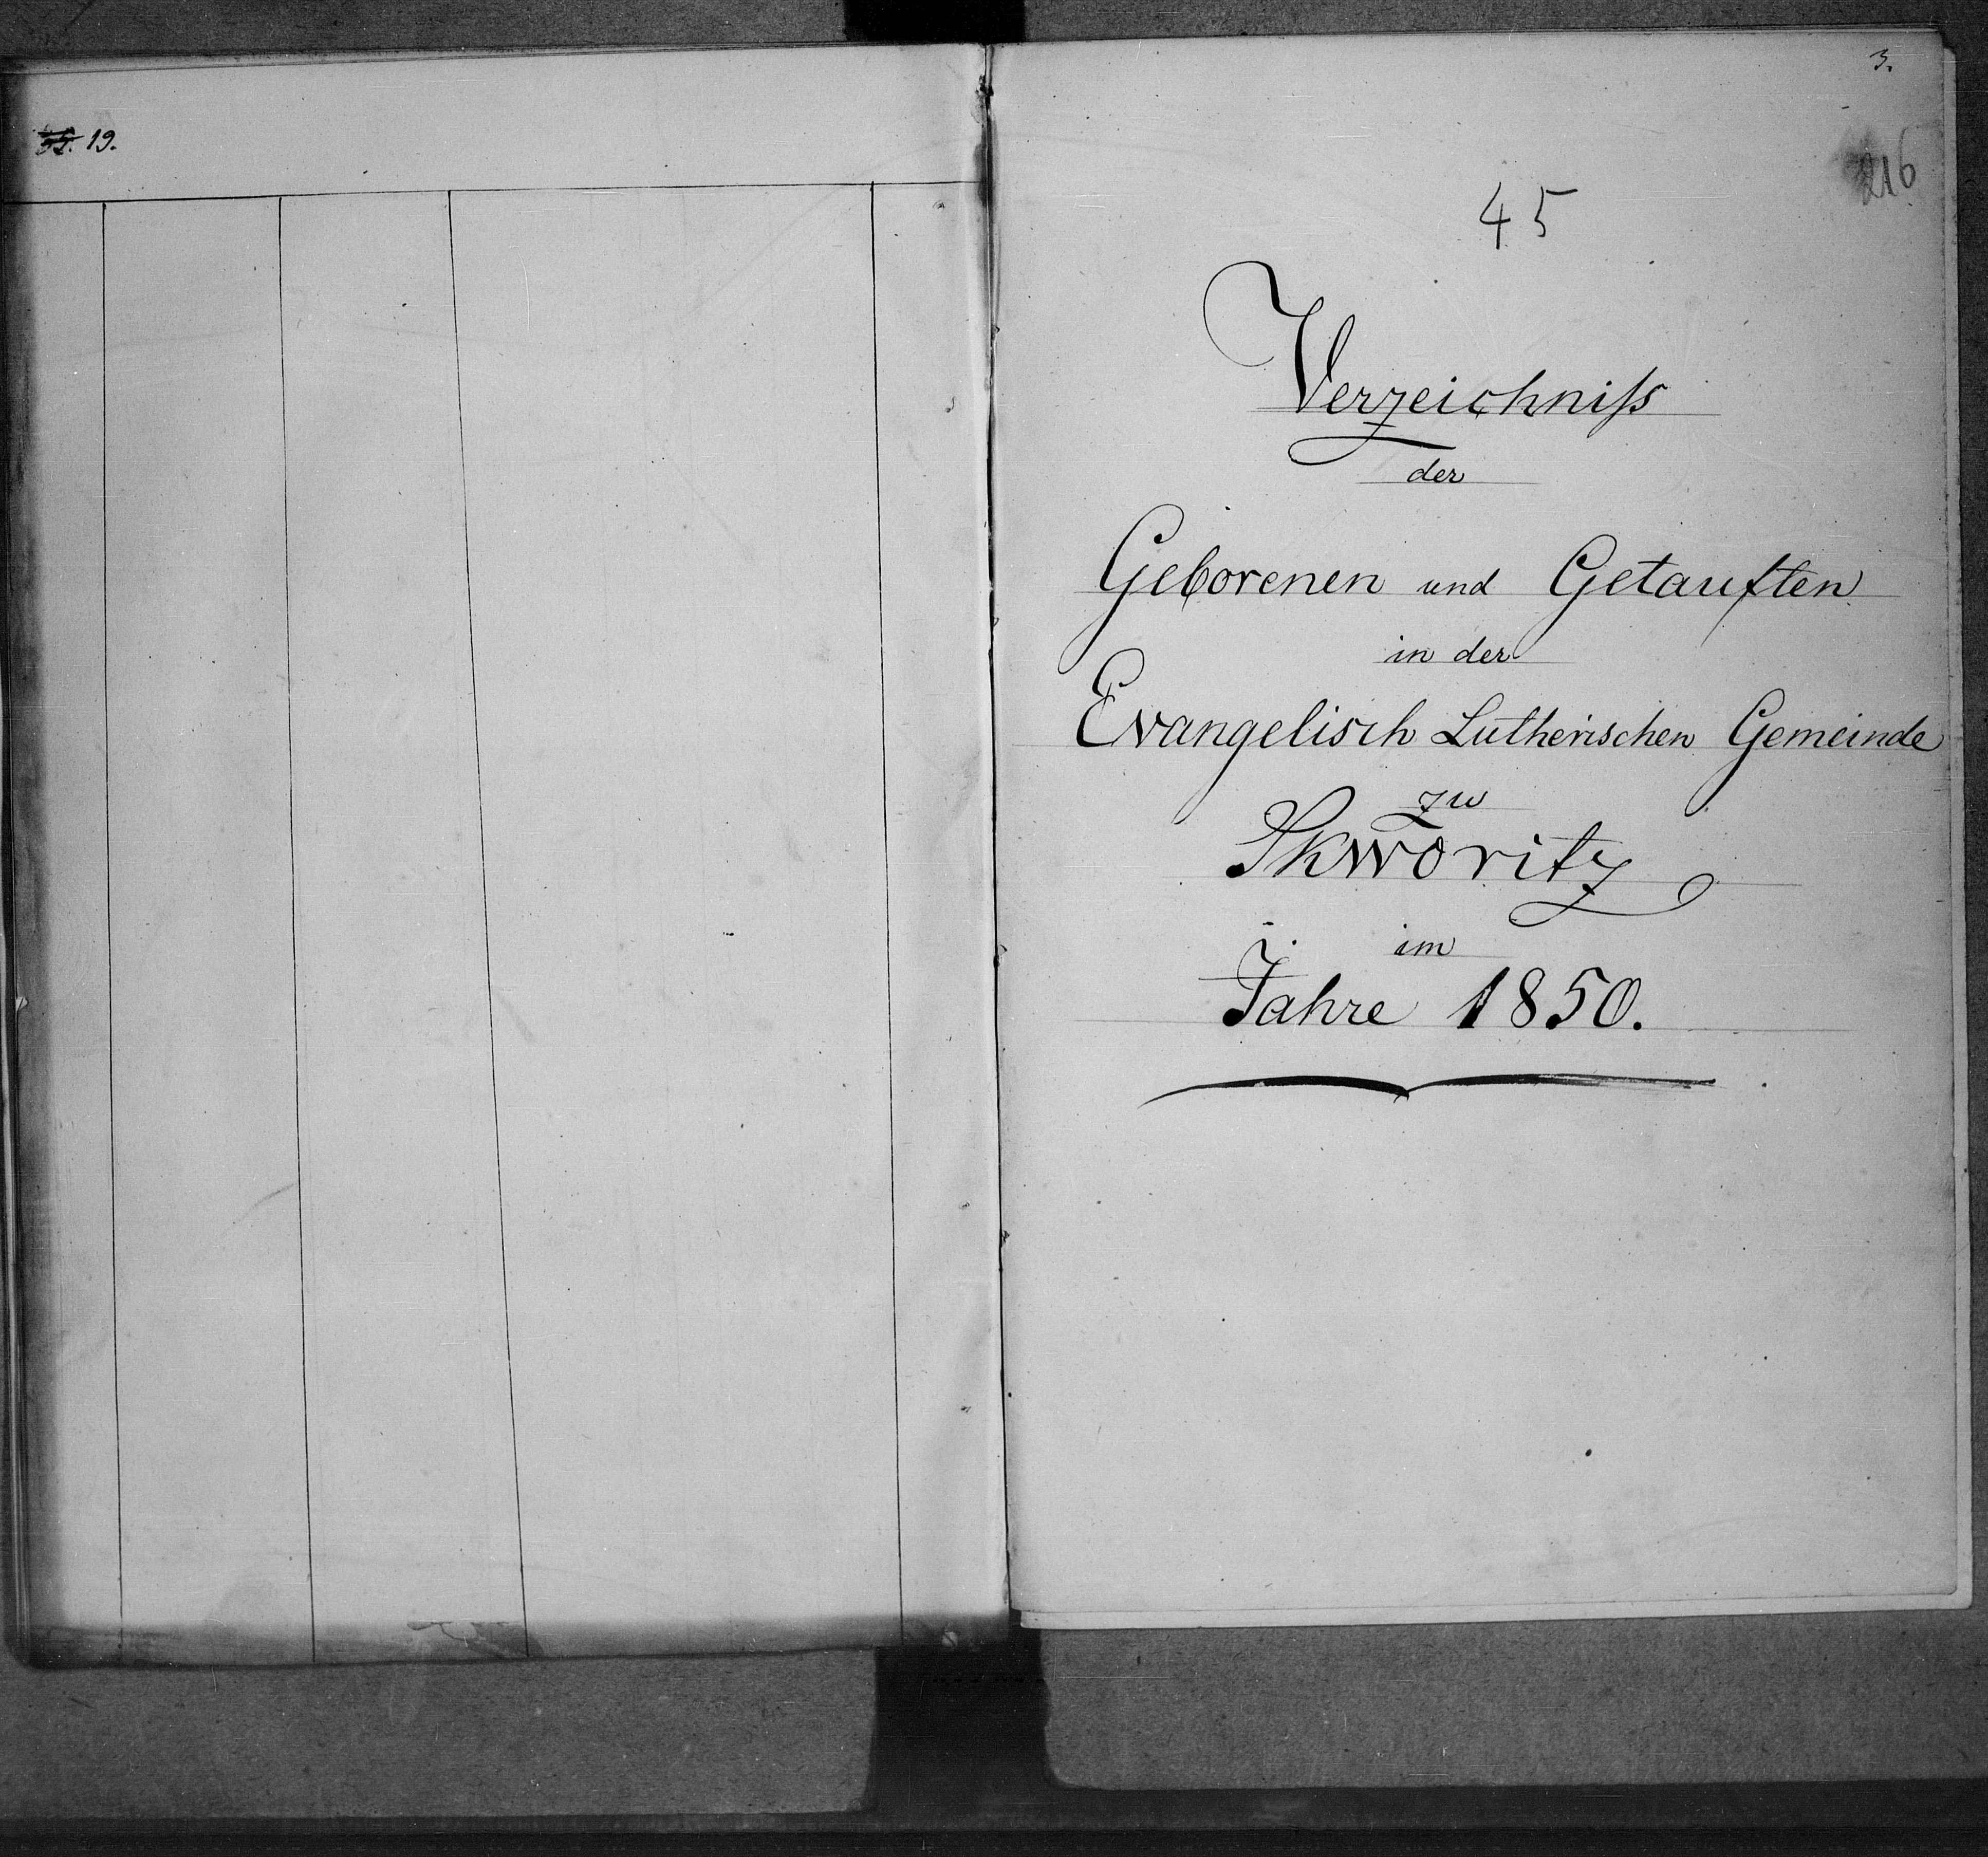 19.
3.
216
45
Verzeichniſs
der
Geborenen und Getauften
in der
Evangelisch Lutherischen Gemeinde
zu
Skworitz
im
Jahre 1850.